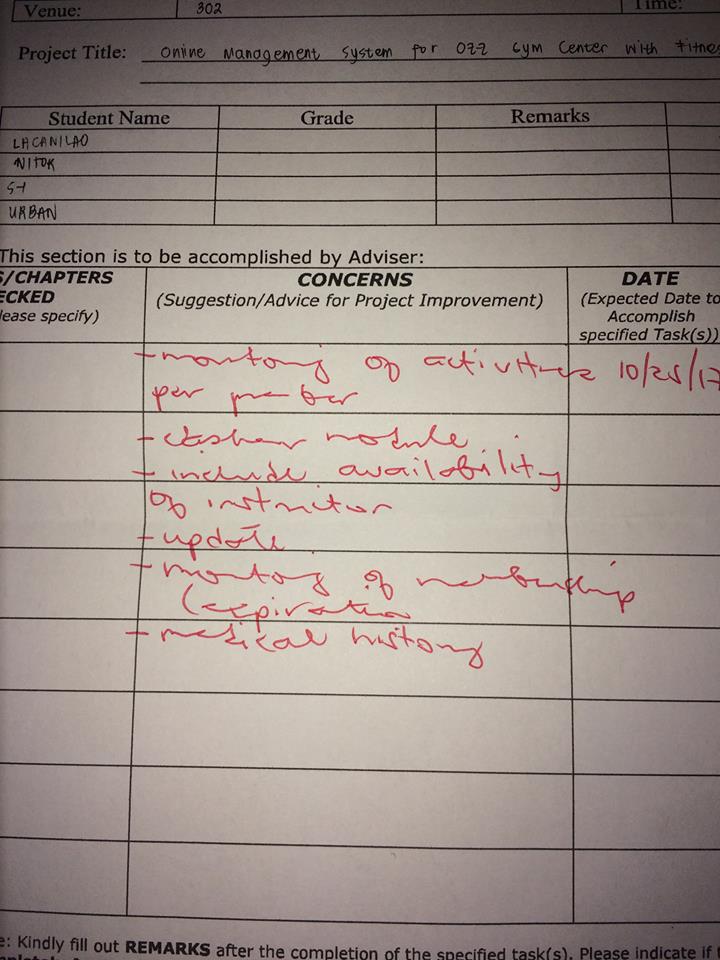 Venue: 302 Time:
Project Title: Online Management System for Ozz Gym Center with Fitnes
Student Name Grade Remarks
LACANILAO
NITOK
SY
URBAN
This section is to be accomplished by Adviser:
S/CHAPTERS CONCERNS DATE
ECKED (Suggestion/Advice for Project Improvement) (Expected Date to
lease specify) Accomplish
specified Task(s))
- monitoring of activities 10/25/17
per member
- cashier module
- include availability
of instructor
- update
- monitoring of membership
(expiration
- medical history
e: Kindly fill out REMARKS after the completion of the specified task(s). Please indicate if